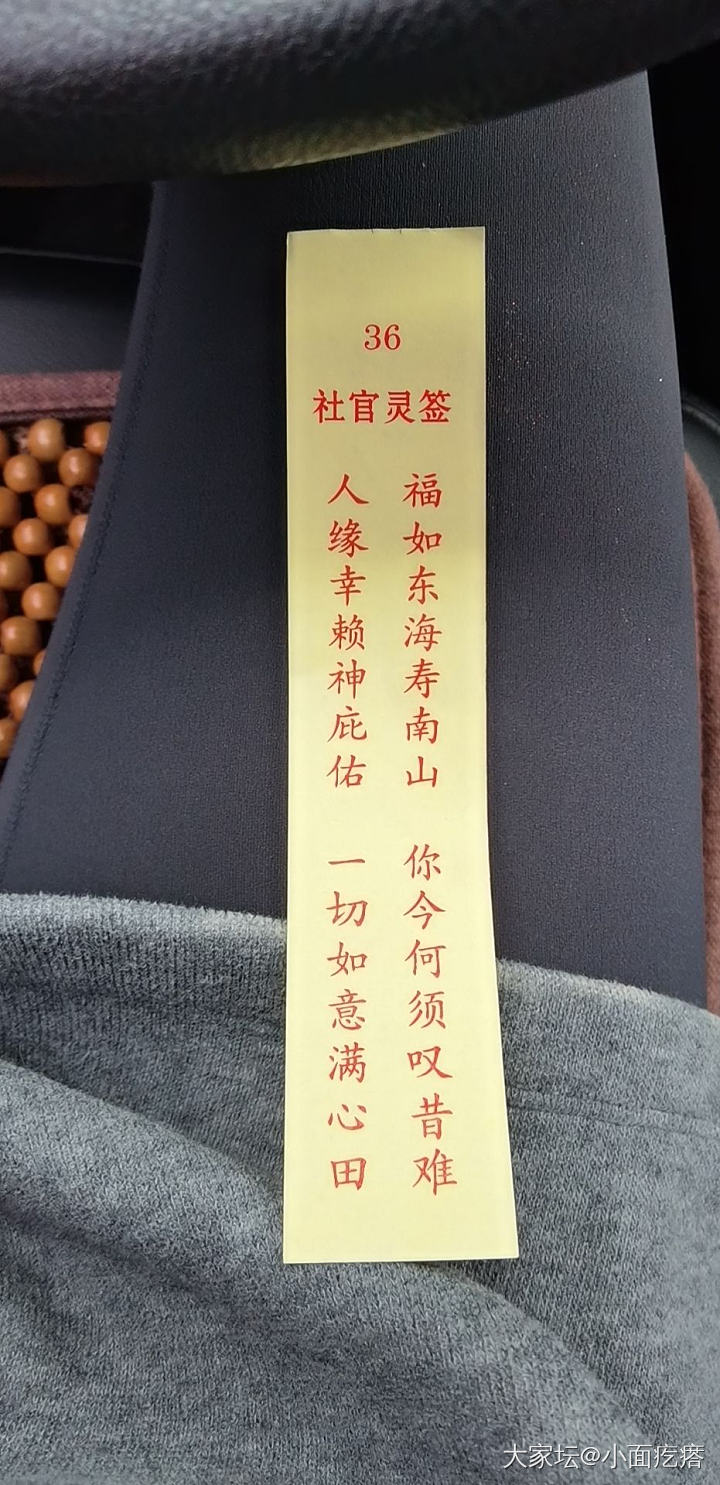 36
社官灵签
福如东海寿南山 你今何须叹昔难
人缘幸赖神庇佑 一切如意满心田
大家坛@小面疙瘩